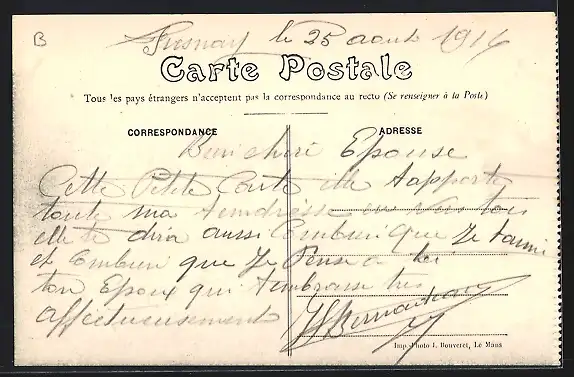 B
Fresnay le 25 aout 1914
Carte Postale
Tous les pays étrangers n'acceptent pas la correspondance au recto (Se renseigner à la Poste)
CORRESPONDANCE
ADRESSE
Bien cheri Epouse
Cette Petite Carte elle t'apporte
toute ma tendresse
elle te dira aussi Combien que Je t'aime
et Combien que Je Pense a toi
ton Epoux qui t'embrasse tres
affectueusement
Imp.-Photo J. Bouveret, Le Mans